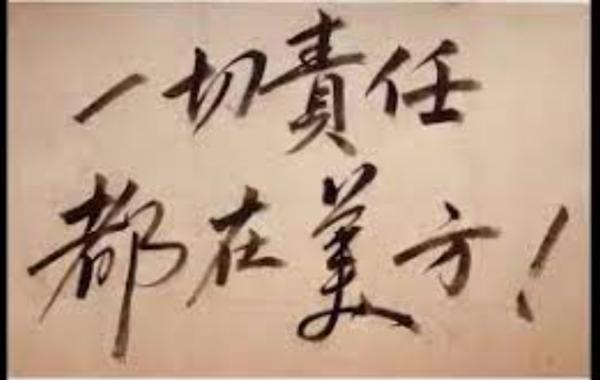 一切責任
都在美方！